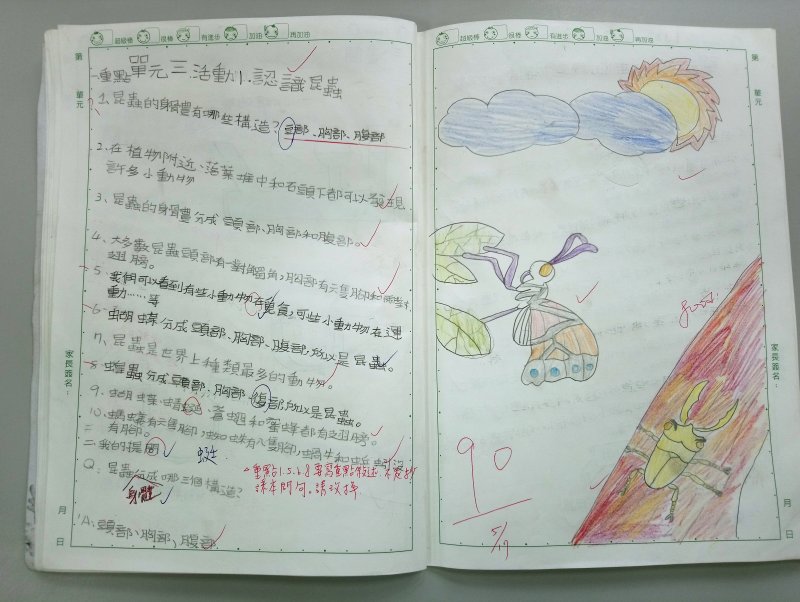 超級棒 很棒 有進步 加油 再加油
第
單元
單元三活動1.認識昆蟲
一、重點
1.昆蟲的身體有哪些構造?頭部、胸部、腹部
2.在植物附近、落葉堆中和石頭下都可以發現
許多小動物
3.昆蟲的身體分成頭部、胸部和腹部。
4.大多數昆蟲頭部有一對觸角,胸部有六隻腳和
翅膀。
5.我們可以看到有些小動物在覓食,有些小動物在運
動……等
6.蝴蝶分成頭部、胸部、腹部,所以是昆蟲。
7.昆蟲是世界上種類最多的動物。
8.分成頭部、胸部、腹部,所以是昆蟲。
9.蝴蝶、蜻蜓、蒼蠅和蜜蜂都有翅膀。
10.螞蟻有六隻腳,蜘蛛有八隻腳,蝸牛和
有腳。
二、我的提問
蜓
Q.昆蟲分成哪三個構造?
身體
重點1.5.6.8要寫重點敘述,不是抄
課本問句。請改掉
A:頭部、胸部、腹部
家長簽名:
月
日
超級棒 很棒 有進步 加油 再加油
第
單元
90
5/17
家長簽名:
月
日